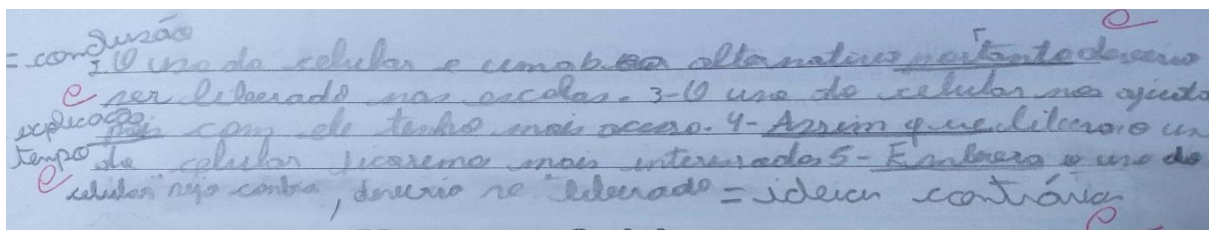 = conclusão
2. O uso do celular e uma boa alternativa portanto deveria
ser liberado nas escolas. 3-O uso do celular nos ajuda
explicação pois com ele tenho mais acesso. 4- Assim que liberar o us
tempo do celular ficaremo mais interesados 5- Embora o uso do
celular seja contra, deverio se liberado = ideia contrária